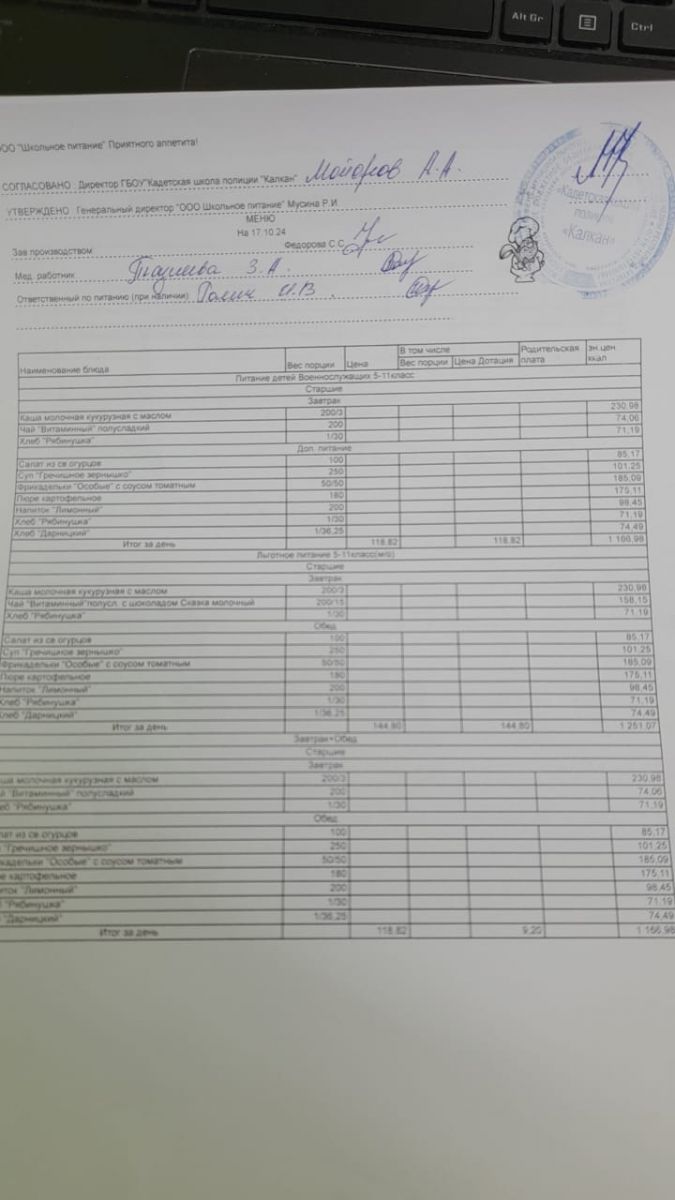 Alt Gr
Ctrl
ООО "Школьное питание" Приятного аппетита!
СОГЛАСОВАНО : Директор ГБОУ"Кадетская школа полиции "Калкан" Майоров А.А.
УТВЕРЖДЕНО : Генеральный директор "ООО Школьное питание" Мусина Р.И.
МЕНЮ
На 17.10.24
Зав производством Федорова С.С.
Мед. работник З.А.
Ответственный по питанию (при наличии) И.В
«Калкан»
Наименование блюда Вес порции Цена В том числе Вес порции Цена Дотация Родительская плата эн.цен. ккал
Питание детей Военнослужащих 5-11класс
Старшие
Завтрак
Каша молочная кукурузная с маслом 200/3 230,98
Чай "Витаминный" полусладкий 200 74,06
Хлеб "Рябинушка" 1/30 71,19
Доп. питание
Салат из св огурцов 100 85,17
Суп "Гречишное зернышко" 250 101,25
Фрикадельки "Особые" с соусом томатным 50/50 185,09
Пюре картофельное 180 175,11
Напиток "Лимонный" 200 98,45
Хлеб "Рябинушка" 1/30 71,19
Хлеб "Дарницкий" 1/36,25 74,49
Итог за день 118.82 118.82 1 166,98
Льготное питание 5-11класс(м/о)
Старшие
Завтрак
Каша молочная кукурузная с маслом 200/3 230,98
Чай "Витаминный"полусл. с шоколадом Сказка молочный 200/15 158,15
Хлеб "Рябинушка" 1/30 71,19
Обед
Салат из св огурцов 100 85,17
Суп "Гречишное зернышко" 250 101,25
Фрикадельки "Особые" с соусом томатным 50/50 185,09
Пюре картофельное 180 175,11
Напиток "Лимонный" 200 98,45
Хлеб "Рябинушка" 1/30 71,19
Хлеб "Дарницкий" 1/36,25 74,49
Итог за день 144.80 144.80 1 251,07
Завтрак+Обед
Старшие
Завтрак
ша молочная кукурузная с маслом 200/3 230,98
й "Витаминный" полусладкий 200 74,06
еб "Рябинушка" 1/30 71,19
Обед
лат из св огурцов 100 85,17
"Гречишное зернышко" 250 101,25
кадельки "Особые" с соусом томатным 50/50 185,09
е картофельное 180 175,11
иток "Лимонный" 200 98,45
"Рябинушка" 1/30 71,19
"Дарницкий" 1/36,25 74,49
Итог за день 118.82 9.20 1 166,98